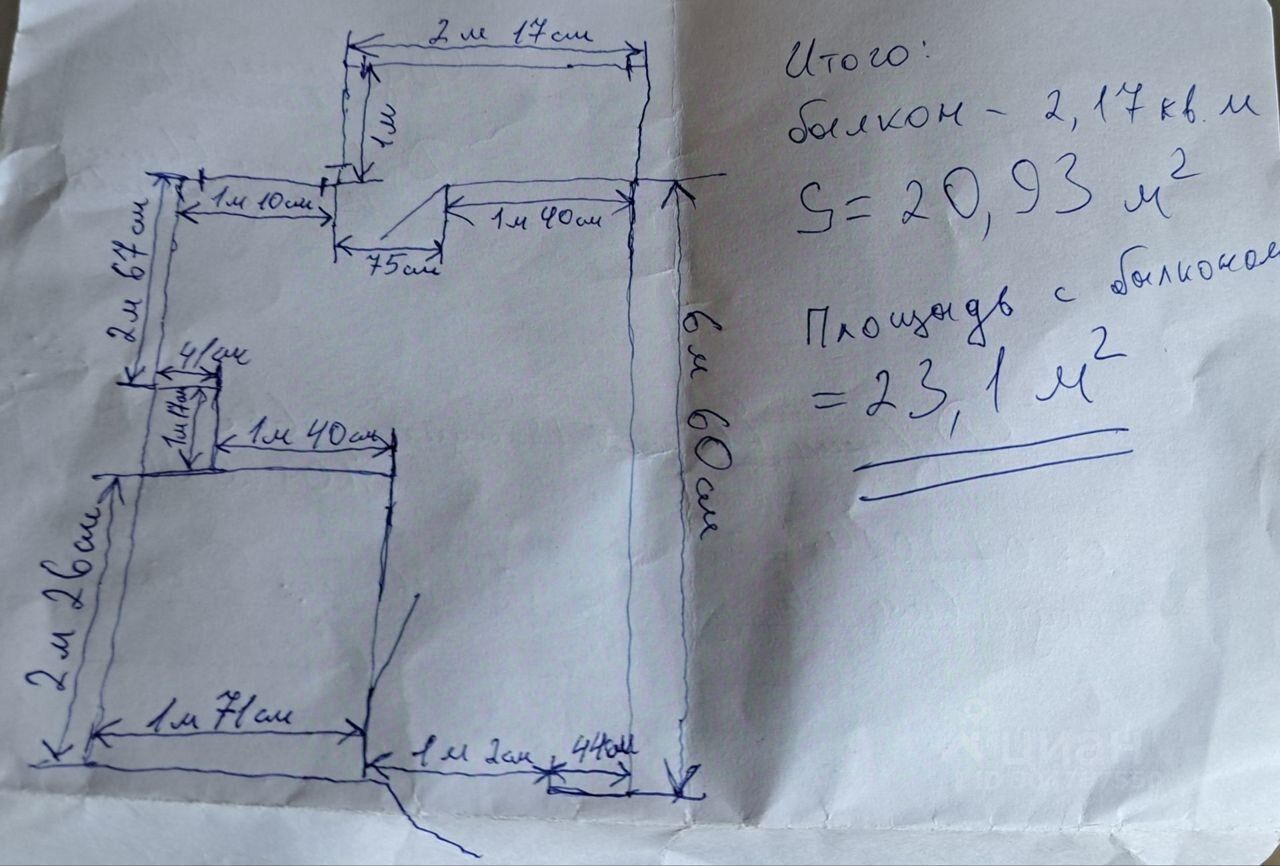 2 м 17 см
1м
1м 10см
1м 40см
75см
2м 67см
41см
1м 17см
1м 40см
6 м 60см
2м 26см
1м 71см
1м 2см
44см
Итого:
балкон - 2,17 кв. м
S = 20,93 м²
Площадь с балконом
= 23,1 м²
циан